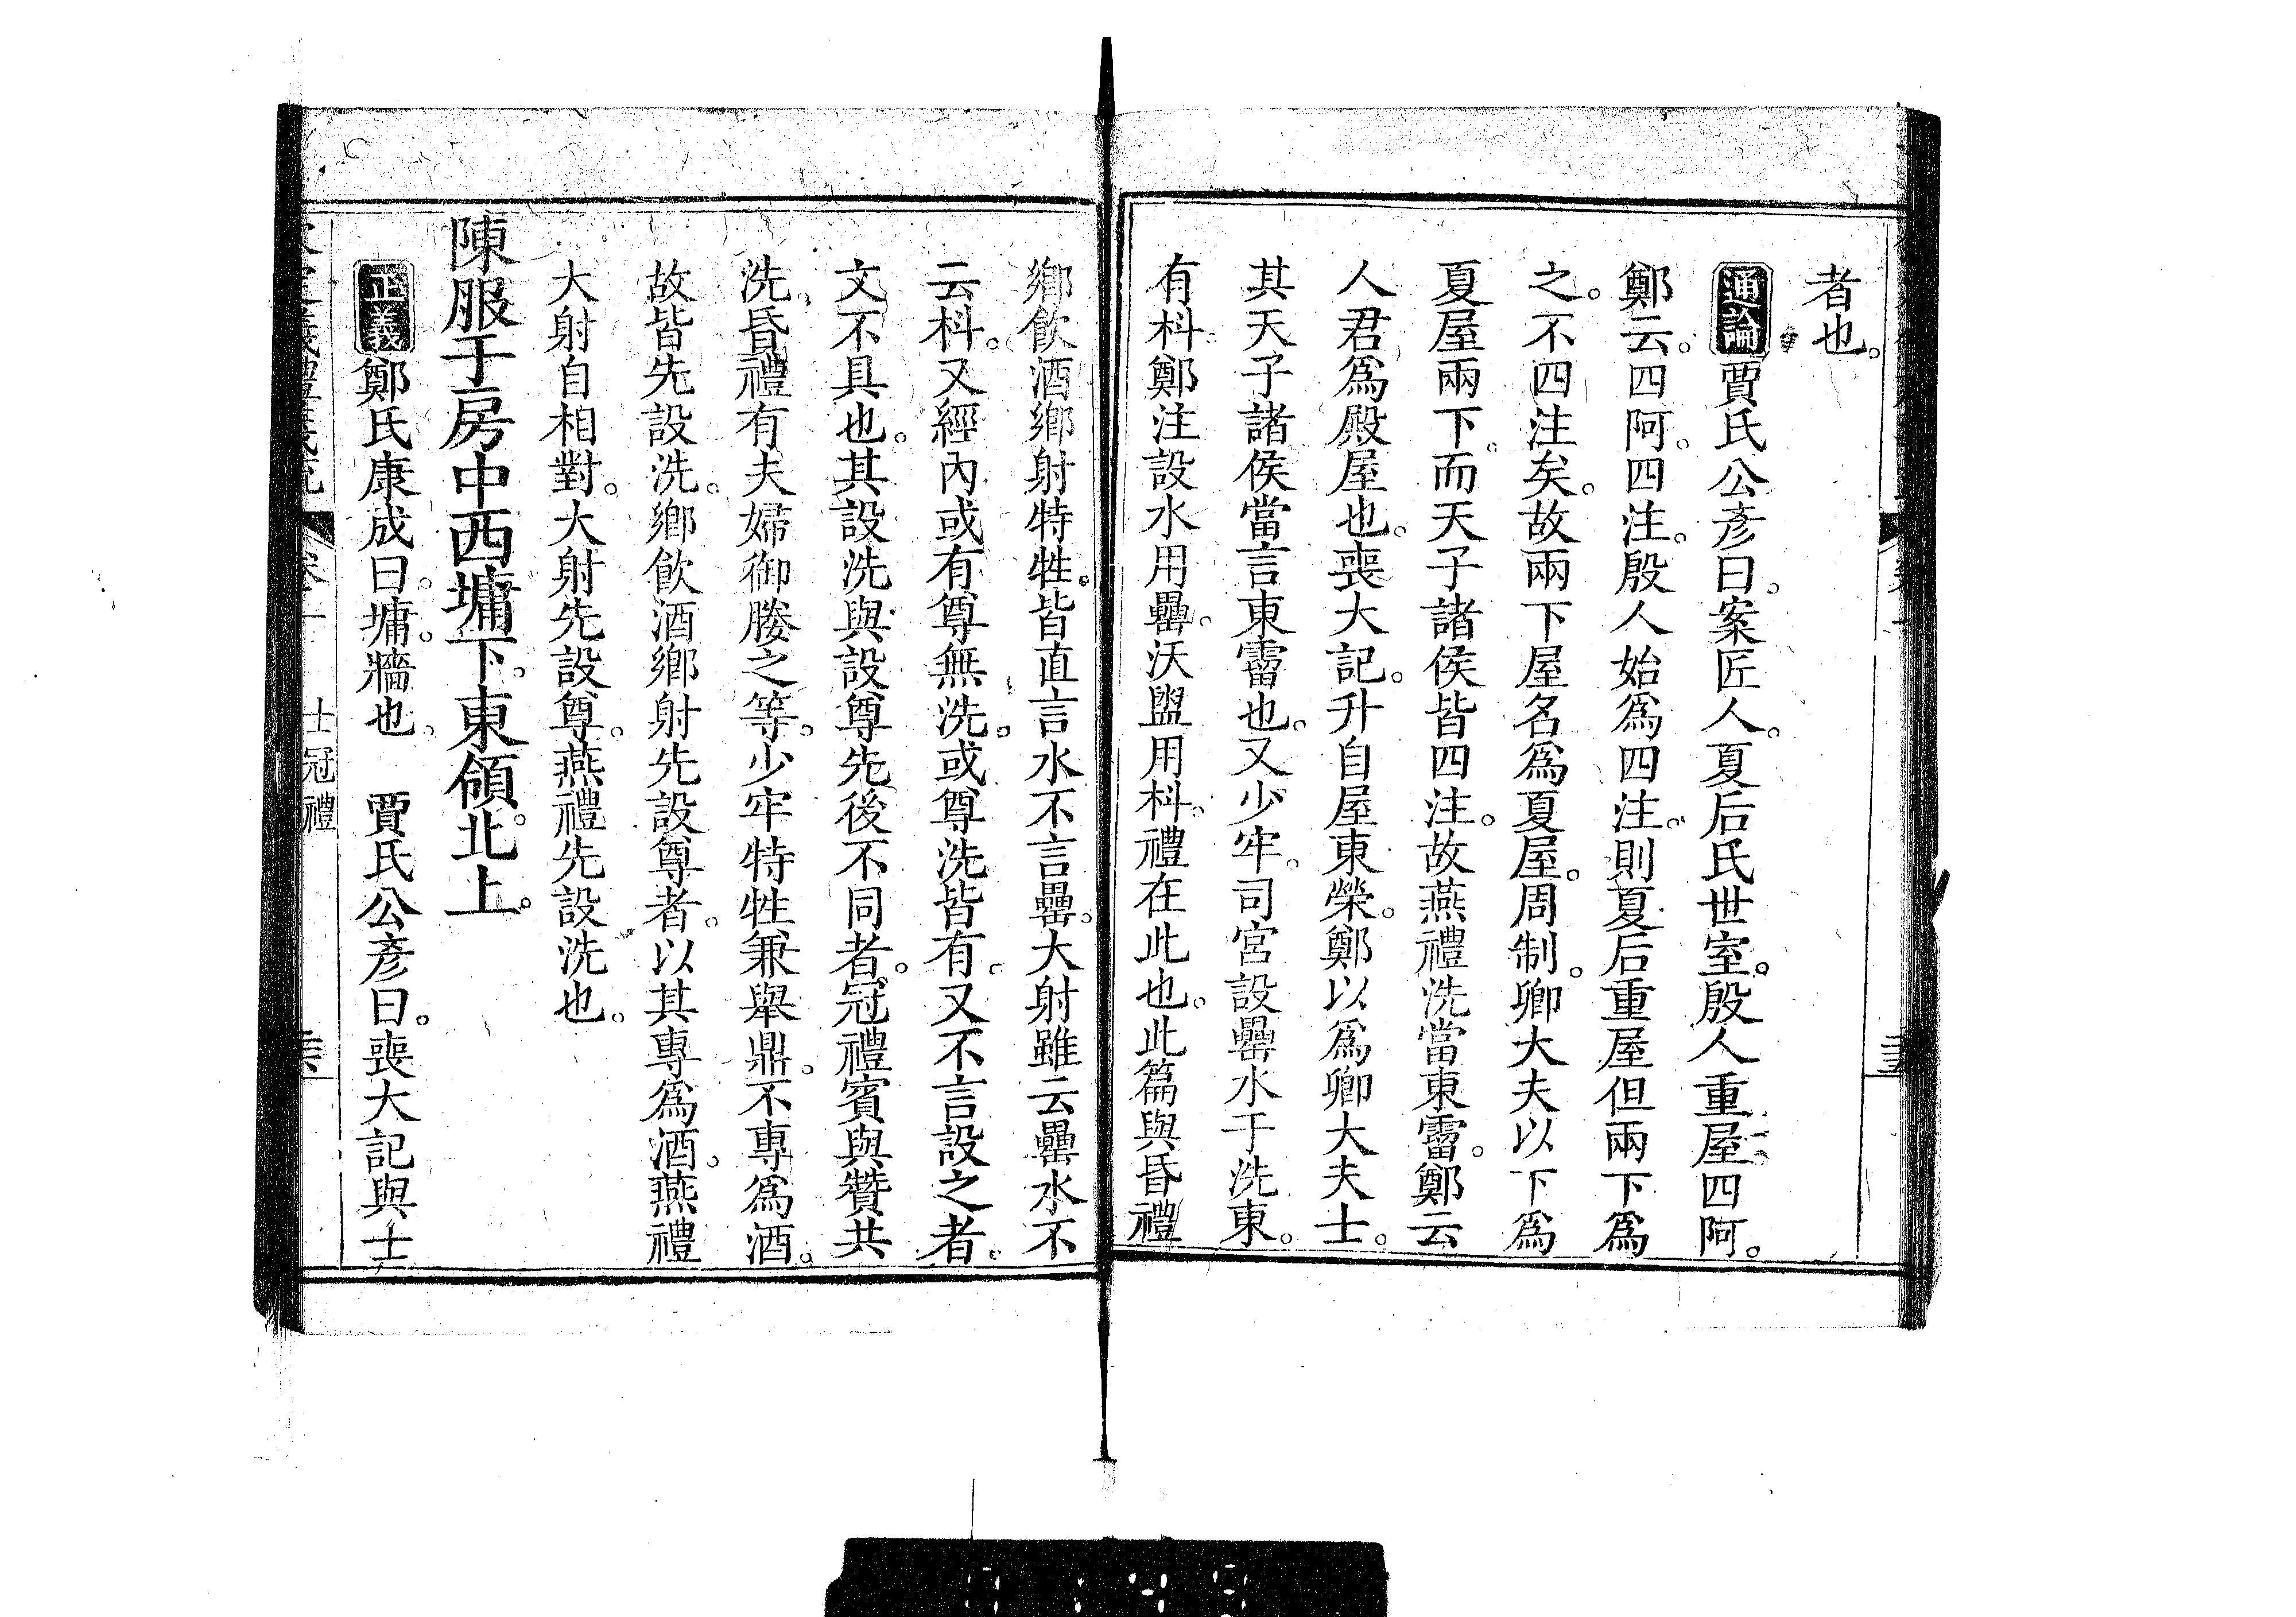 者也。
通論賈氏公彥曰。案匠人。夏后氏世室。殷人重屋四阿。
鄭云。四阿。四注。殷人始爲四注。則夏后重屋但兩下爲
之。不四注矣。故兩下屋名爲夏屋。周制。卿大夫以下爲
夏屋兩下。而天子諸侯皆四注。故燕禮洗當東霤。鄭云
人君爲殿屋也。喪大記。升自屋東榮。鄭以爲卿大夫士。
其天子諸侯當言東霤也。又少牢。司宮設罍水于洗東。
有枓。鄭注設水用罍。沃盥用枓。禮在此也。此篇與昏禮
鄉飮酒鄉射特牲。皆直言水不言罍。大射雖云罍水不
云枓。又經內或有尊無洗。或尊洗皆有。又不言設之者。
文不具也。其設洗與設尊先後不同者。冠禮賓與贊共
洗。昏禮有夫婦御媵之等。少牢特牲兼舉鼎。不專爲酒。
故皆先設洗。鄉飮酒鄉射先設尊者。以其專爲酒。燕禮
大射自相對。大射先設尊。燕禮先設洗也。
陳服于房中西墉下。東領。北上。
正義鄭氏康成曰。墉。牆也。 賈氏公彥曰。喪大記與士
士冠禮